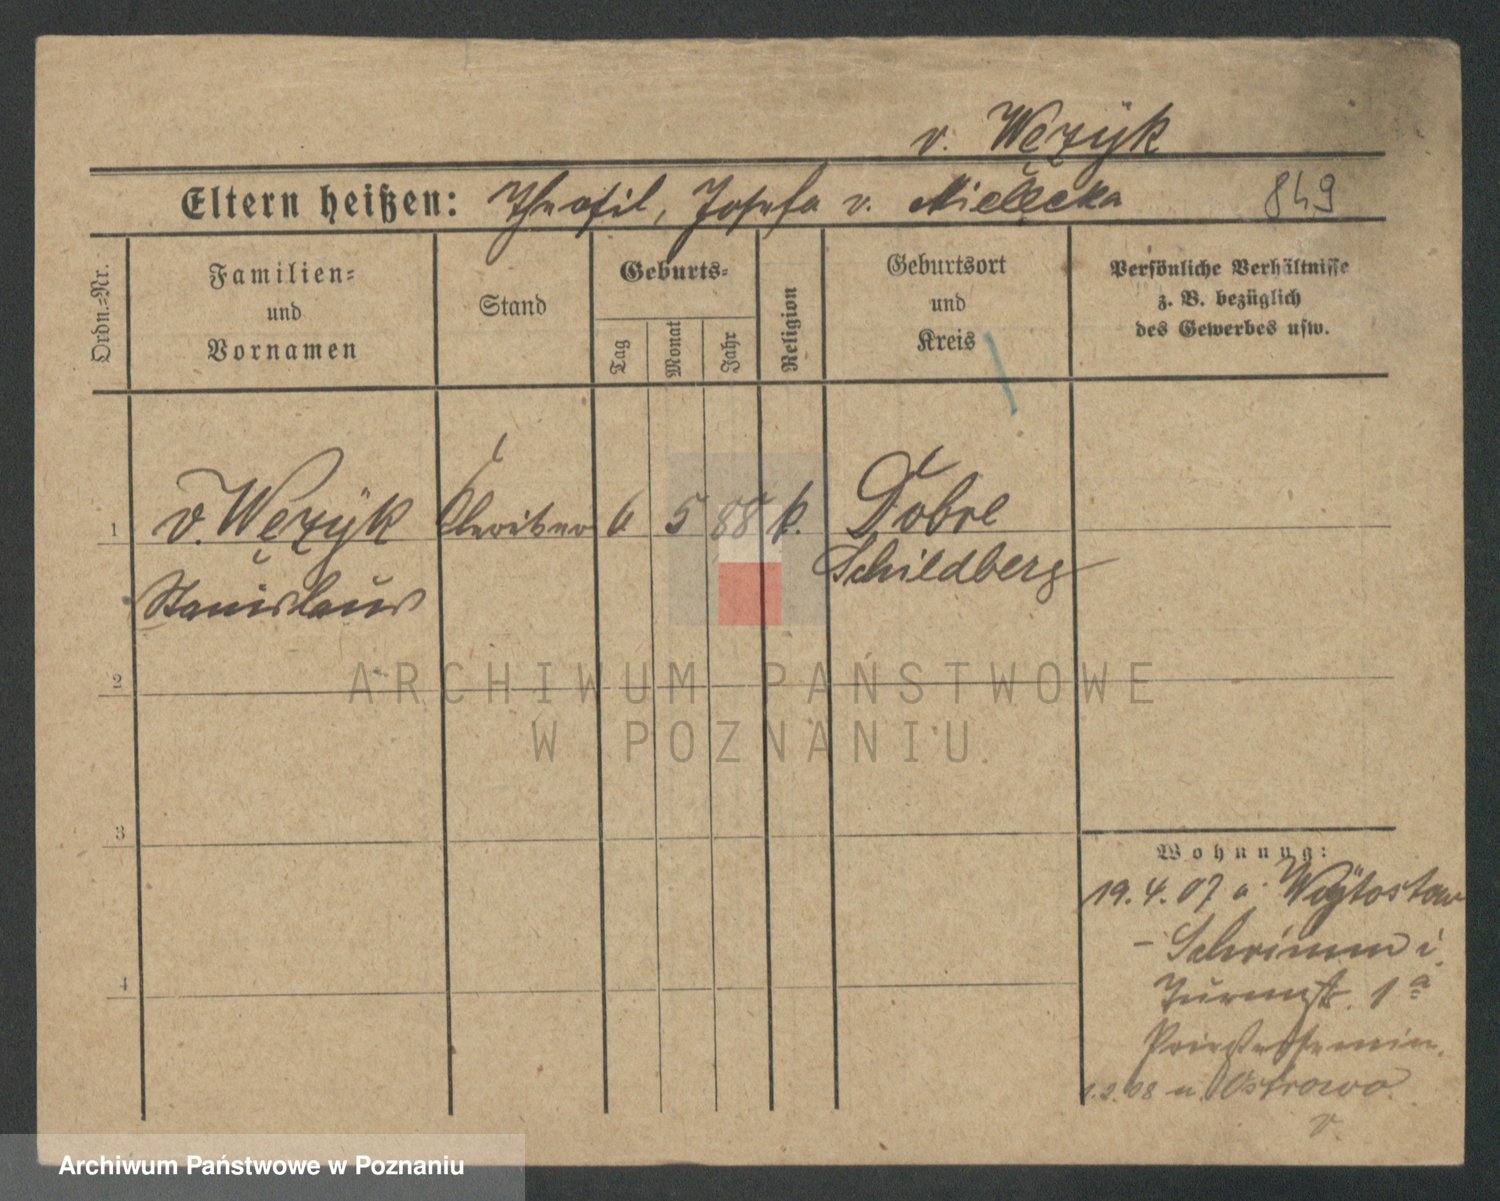 v. Wężyk
Eltern heißen: Theofil, Josefa v. Mielęcka 849
Ordn.=Nr.
Familien=
und
Vornamen
Stand
Geburts=
Tag
Monat
Jahr
Religion
Geburtsort
und
Kreis
Persönliche Verhältnisse
z. B. bezüglich
des Gewerbes usw.
1 v. Wężyk Kleriker 6 5 88 k. Dobre
Schildberg
Stanislaus
2
ARCHIWUM PAŃSTWOWE
W POZNANIU
3
Wohnung:
19.4.07 a.
- Schrimm i.
Turmstr. 1a
Priestersemin.
1.2.08 n. Ostrowo
v.
4
Archiwum Państwowe w Poznaniu